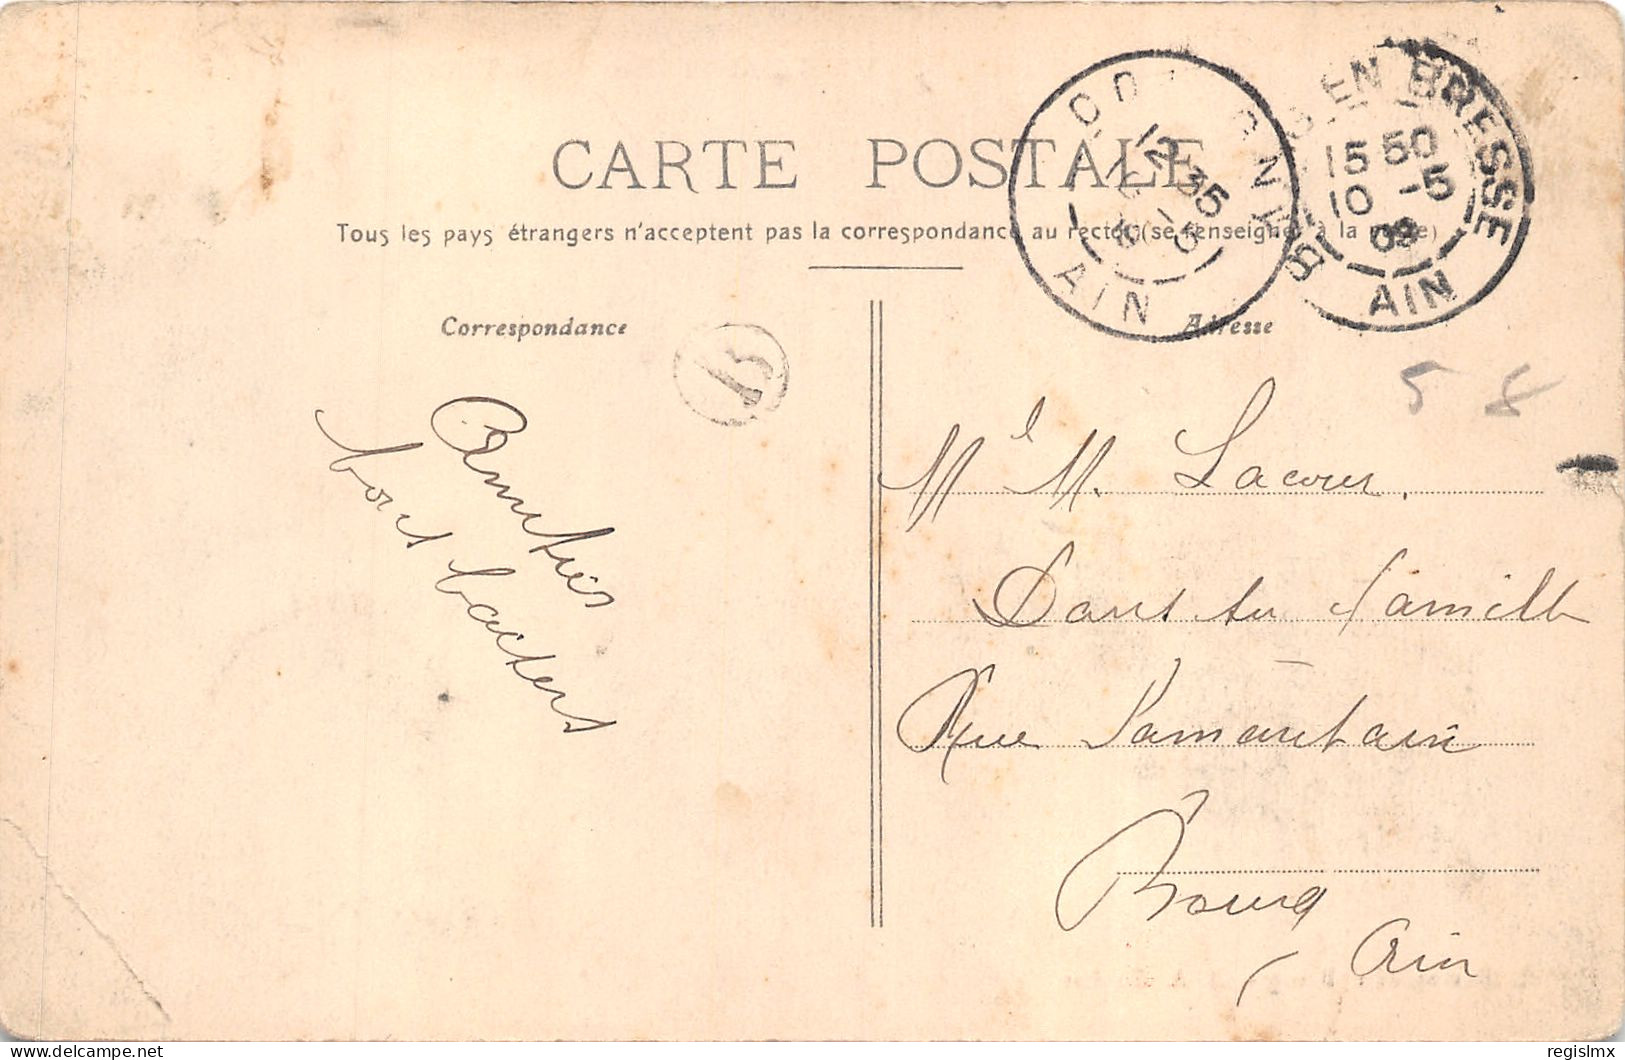 CARTE POSTALE
Tous les pays étrangers n'acceptent pas la correspondance au recto (se renseigner à la poste)
Correspondance
Adresse
12 35
AIN
BOURG EN BRESSE
15 50
10 -5
09
AIN
B
5 8
Amitiés
Mle M. Lacour.
Dans sa famille
Rue Samaritaine
Bourg
Ain
regislmx
delcampe.net